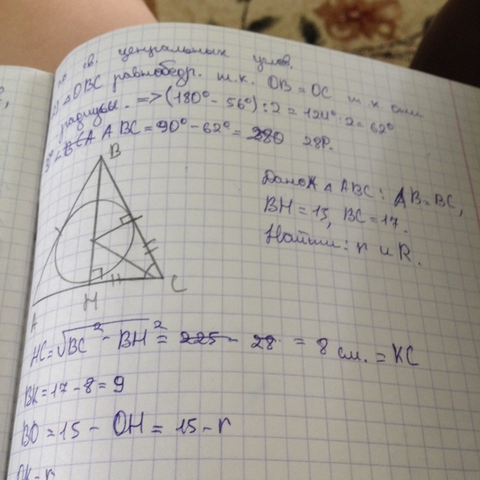 св. центральных углов.
△OBC равнобедр. т.к. OB = OC т.к они
радиусы. => (180° - 56°) : 2 = 124° : 2 = 62°
ABC = 90° - 62° = 280 28°.
B
Дано: △ ABC: AB = BC,
BH = 15, BC = 17.
Найти: r и R.
A
H
C
HC = √BC² - BH² = 225 - 28 = 8 см. = KC
BK = 17 - 8 = 9
BO = 15 - OH = 15 - r
OK - r